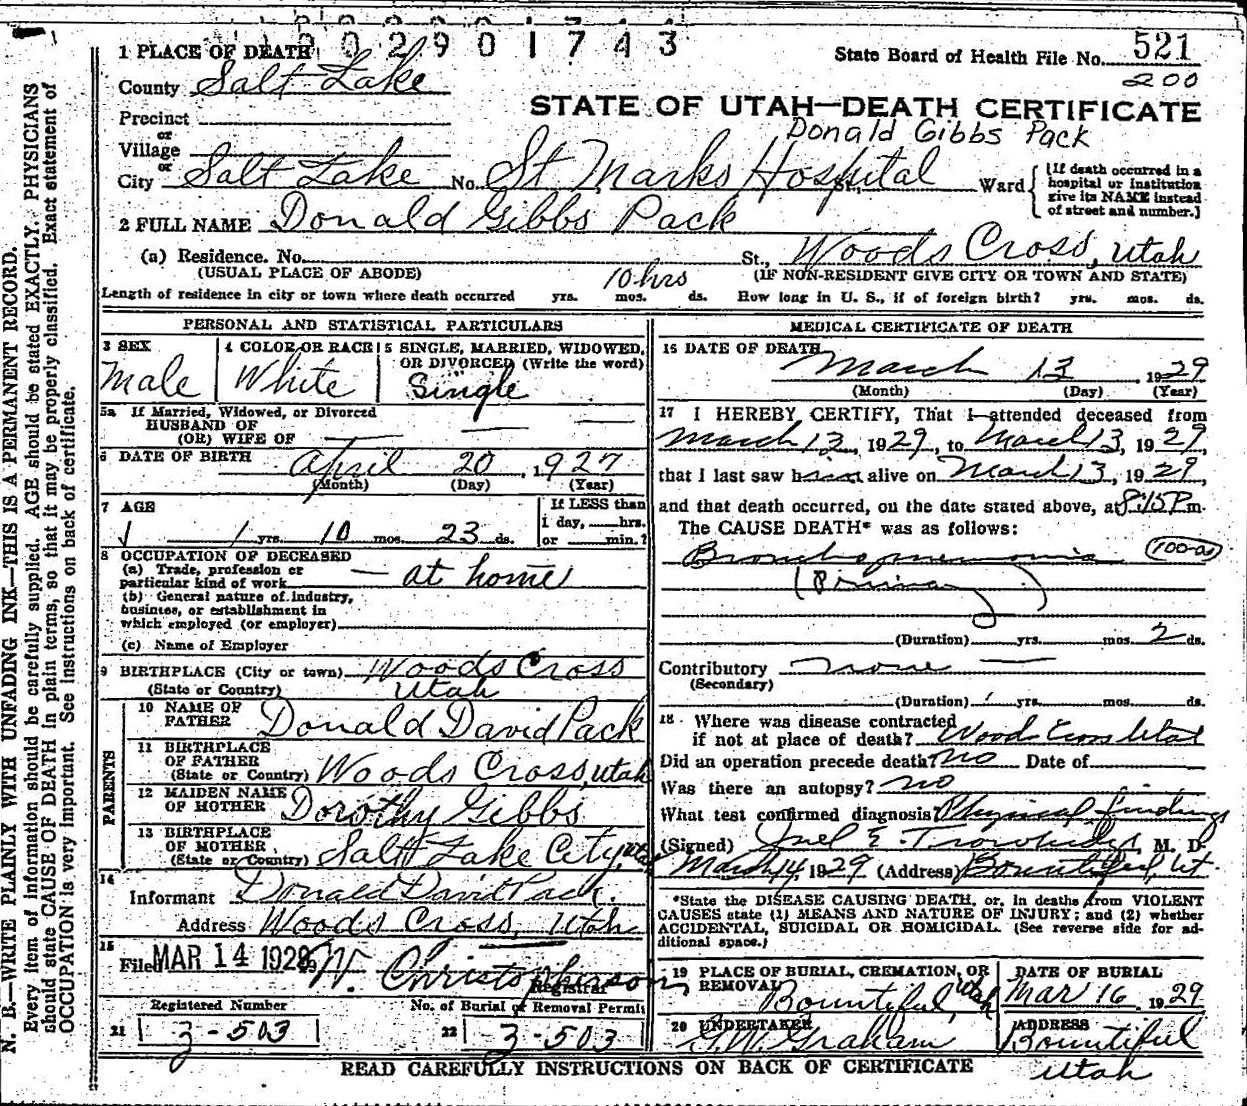 0 0 2 9 0 1 7 4 3
1 PLACE OF DEATH
State Board of Health File No. 521
200
County Salt Lake
STATE OF UTAH—DEATH CERTIFICATE
Donald Gibbs Pack
Precinct
or
Village
or
City Salt Lake No. St Marks Hospital St., Ward
(If death occurred in a
hospital or institution
give its NAME instead
of street and number.)
2 FULL NAME Donald Gibbs Pack
(a) Residence. No. St., Woods Cross, Utah
(USUAL PLACE OF ABODE) (IF NON-RESIDENT GIVE CITY OR TOWN AND STATE)
10 hrs
Length of residence in city or town where death occurred yrs. mos. ds. How long in U. S., if of foreign birth? yrs. mos. ds.
PERSONAL AND STATISTICAL PARTICULARS
3 SEX
Male
4 COLOR OR RACE
White
5 SINGLE, MARRIED, WIDOWED,
OR DIVORCED (Write the word)
Single
5a If Married, Widowed, or Divorced
HUSBAND OF
(OR) WIFE OF
6 DATE OF BIRTH April 20 1927
(Month) (Day) (Year)
7 AGE
1 yrs. 10 mos. 23 ds.
If LESS than
1 day, hrs.
or min.?
8 OCCUPATION OF DECEASED
(a) Trade, profession or
particular kind of work — at home
(b) General nature of industry,
business, or establishment in
which employed (or employer)
(c) Name of Employer
9 BIRTHPLACE (City or town) Woods Cross
(State or Country) Utah
PARENTS
10 NAME OF
FATHER Donald David Pack
11 BIRTHPLACE
OF FATHER
(State or Country) Woods Cross, Utah
12 MAIDEN NAME
OF MOTHER Dorothy Gibbs
13 BIRTHPLACE
OF MOTHER
(State or Country) Salt Lake City, Utah
14
Informant Donald David Pack.
Address Woods Cross, Utah
15
Filed MAR 14 1929 W. Christopherson
Registrar
Registered Number No. of Burial or Removal Permit
21 3-503 22 3-503
MEDICAL CERTIFICATE OF DEATH
16 DATE OF DEATH
March 13, 1929
(Month) (Day) (Year)
17 I HEREBY CERTIFY, That I attended deceased from
March 13, 1929, to March 13, 1929
that I last saw him alive on March 13, 1929,
and that death occurred, on the date stated above, at 8:15 P m.
The CAUSE DEATH* was as follows:
Bronchopneumonia 100-a
(Primary)
(Duration) yrs. mos. 2 ds.
Contributory none
(Secondary)
(Duration) yrs. mos. ds.
18 Where was disease contracted
if not at place of death? Woods Cross Utah
Did an operation precede death? no Date of
Was there an autopsy? no
What test confirmed diagnosis? Physical findings
(Signed) E. Trowbridge, M. D.
March 14, 1929 (Address) Bountiful, Ut.
*State the DISEASE CAUSING DEATH, or, in deaths from VIOLENT
CAUSES state (1) MEANS AND NATURE OF INJURY; and (2) whether
ACCIDENTAL, SUICIDAL OR HOMICIDAL. (See reverse side for ad-
ditional space.)
19 PLACE OF BURIAL, CREMATION, OR
REMOVAL
Bountiful, Utah
DATE OF BURIAL
Mar 16 1929
20 UNDERTAKER
Graham
ADDRESS
Bountiful
Utah
READ CAREFULLY INSTRUCTIONS ON BACK OF CERTIFICATE
N. B.—WRITE PLAINLY WITH UNFADING INK—THIS IS A PERMANENT RECORD.
Every item of information should be carefully supplied. AGE should be stated EXACTLY. PHYSICIANS
should state CAUSE OF DEATH in plain terms, so that it may be properly classified. Exact statement of
OCCUPATION is very important. See instructions on back of certificate.